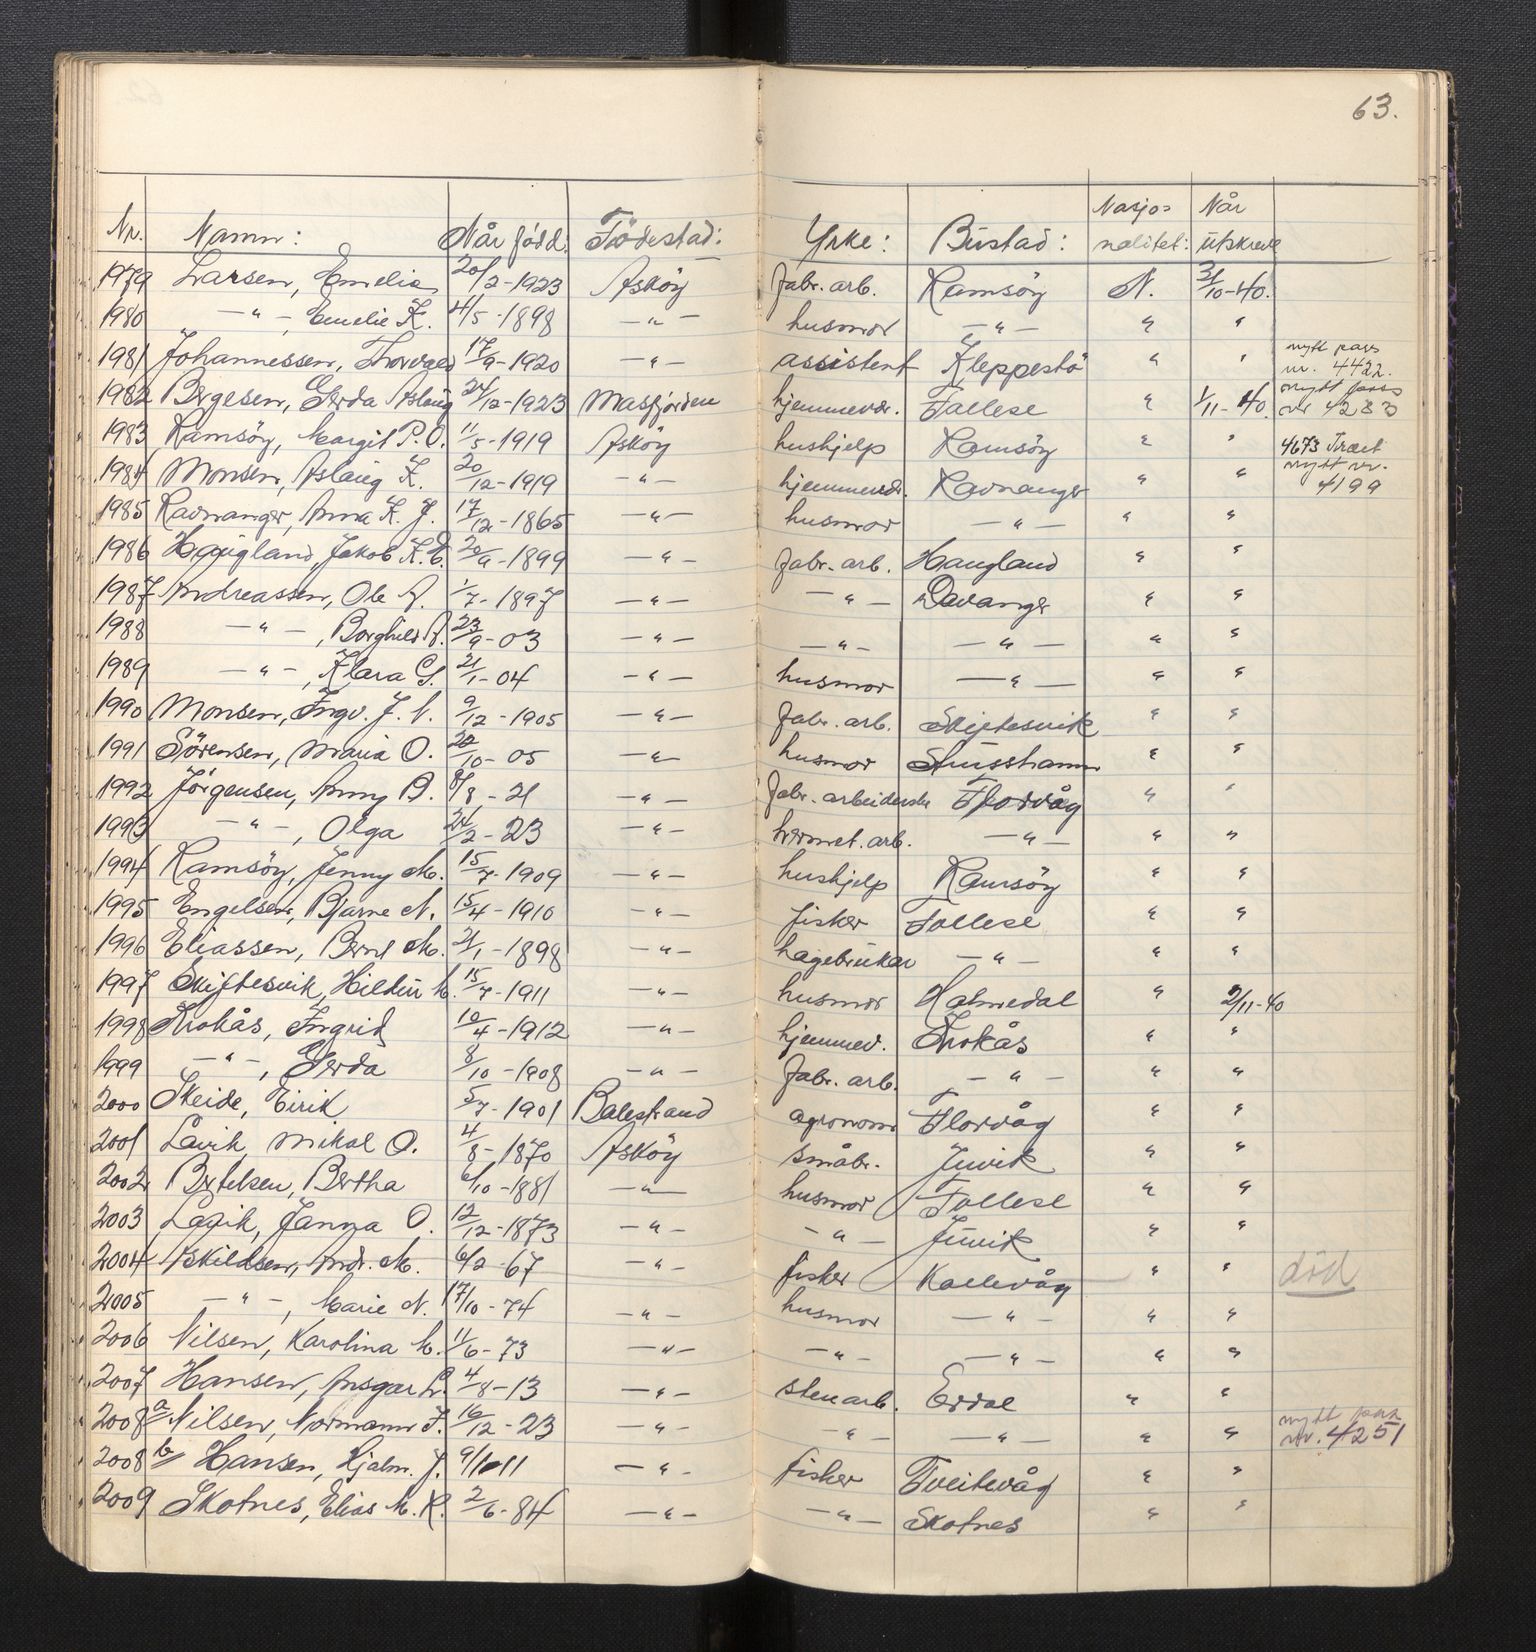 63.
Nr. Namn: Når född: Födestad: Yrke: Bustad: Nasjo= nalitet: Når utskreve
1979 Larsen, Emelia 20/2-1923 Asköy fabr. arb. Ramsöy N. 31/10-40.
1980 —"—, Emelie K. 4/5-1898 —"— husmor —"— " "
1981 Johannessen, Thorvald 17/9-1920 —"— assistent Kleppestö " " nytt pass nr. 4422.
1982 Bergesen, Gerda Aslaug 24/12-1923 Masfjorden hjemmevær. Follese " 1/11-40. nytt pass nr 4233
1983 Ramsöy, Margit P.O. 11/5-1919 Asköy hushjelp Ramsöy " " 4673 Træet
1984 Monsen, Aslaug K. 20/12-1919 —"— hjemmevær. Ravnanger " " nytt nr. 4199
1985 Ravnanger, Anna K. J. 17/12-1865 —"— husmor —"— " "
1986 Haugland, Jakob K.E. 20/9-1899 —"— fabr. arb. Haugland " "
1987 Andreassen, Ole A. 1/7-1897 —"— —"— Davanger " "
1988 —"—, Borghild A. 23/9-03 —"— —"— —"— " "
1989 —"—, Klara G. 21/1-04 —"— husmor —"— " "
1990 Monsen, Ingv. J. M. 9/12-1905 —"— fabr. arb. Skiftesvik " "
1991 Sörensen, Maria O. 20/10-05 —"— husmor Strusshamn " "
1992 Jörgensen, Anny B. 8/8-21 —"— fabr. arbeiderske Florvåg " "
1993 —"—, Olga 24/2-23 —"— hermet. arb. —"— " "
1994 Ramsöy, Jenny M. 15/7-1909 —"— hushjelp Ramsöy " "
1995 Engelsen, Bjarne N. 15/4-1910 —"— fisker Follese " "
1996 Eliassen, Bernt M. 21/1-1898 —"— hagebrukar —"— " "
1997 Skiftesvik, Hildur M. 15/7-1911 —"— husmor Holmedal " 2/11-40
1998 Krokås, Ingrid 10/4-1912 —"— hjemmev. Krokås " "
1999 —"—, Gerda 8/10-1908 —"— fabr. arb. —"— " "
2000 Skeide, Eirik 5/7-1901 Balestrand agronom Florvåg " "
2001 Lavik, Mikal O. 4/8-1870 Asköy småbr. Juvik " "
2002 Bertelsen, Bertha 6/10-1881 —"— husmor Follese " "
2003 Lavik, Janna O. 12/12-1873 —"— —"— Juvik " "
2004 Askildsen, Andr. M. 6/2-67 —"— fisker Kollevåg " " död
2005 —"—, Marie N. 17/10-74 —"— husmor —"— " "
2006 Nilsen, Karolina M. 11/6-73 —"— —"— —"— " "
2007 Hansen, Ansgar L. 4/8-13 —"— stenarb. Erdal " "
2008 a/ Nilsen, Normann J. 16/12-23 —"— —"— —"— " " nytt pass nr. 4251
2008 b/ Hansen, Hjalm. J. 9/1-11 —"— fisker Tveitevåg " "
2009 Skotnes, Elias M. K. 2/6-84 —"— —"— Skotnes " "